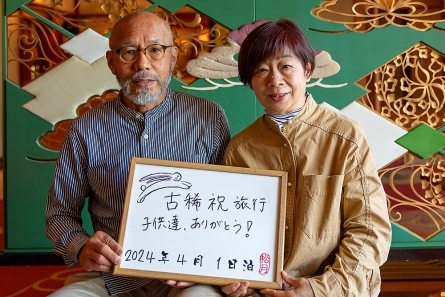 古稀祝旅行
子供達、ありがとう!
2024年4月1日泊